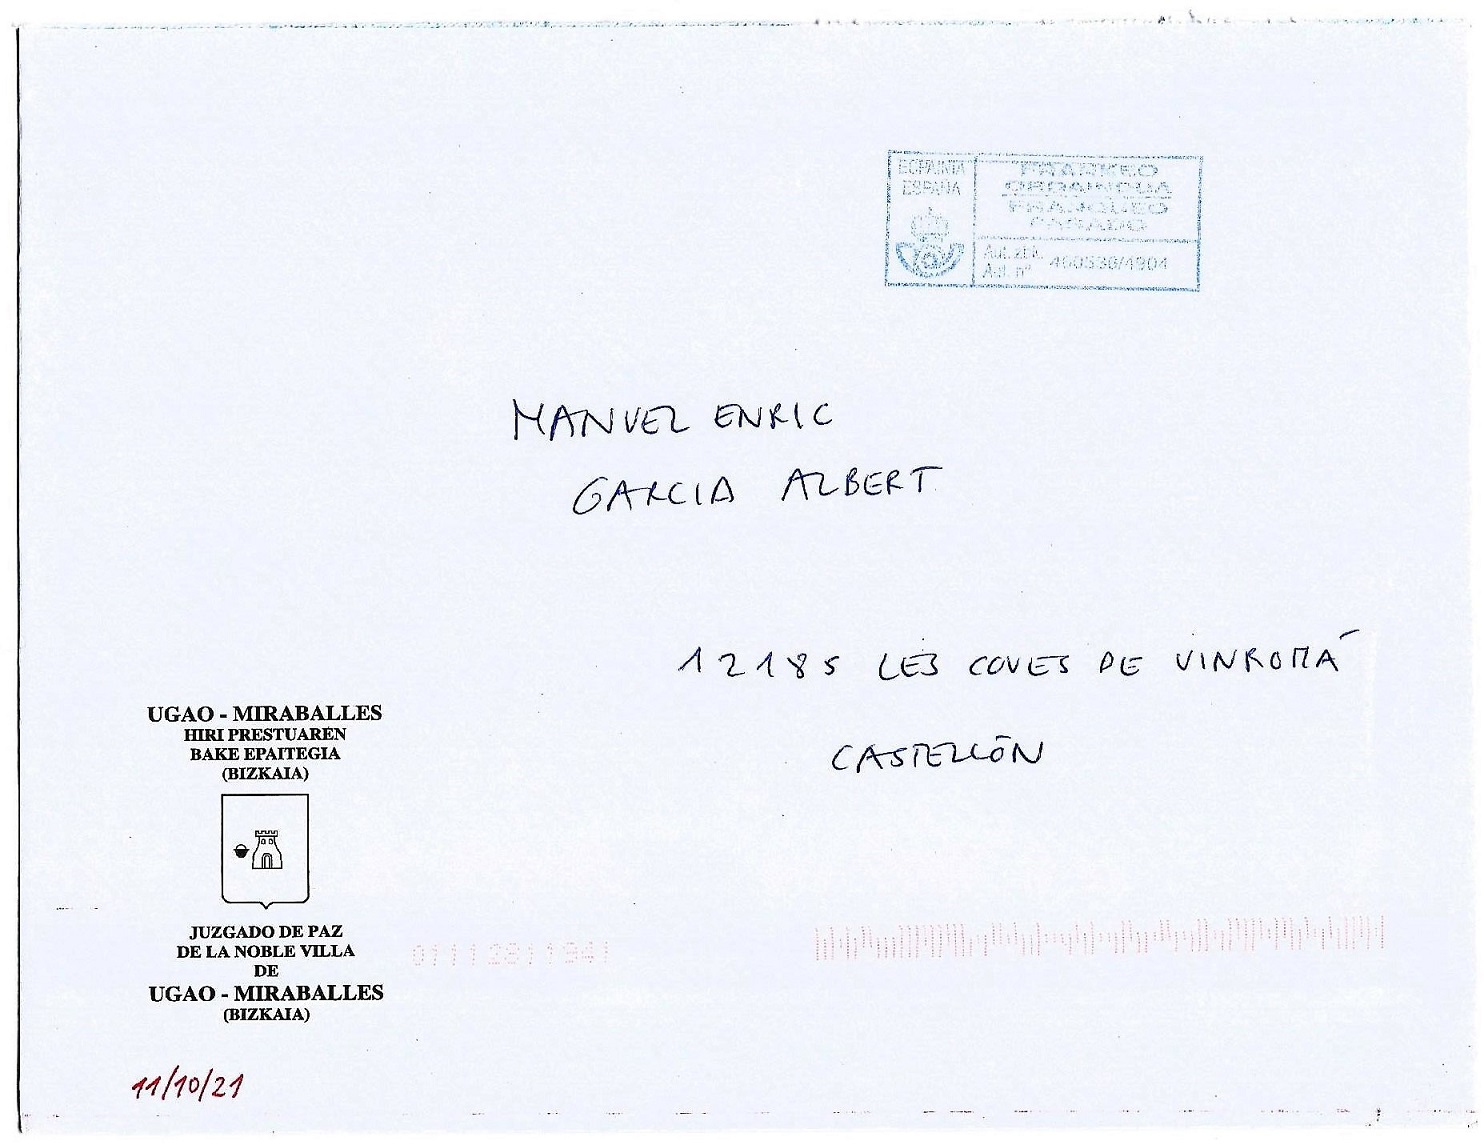 ESPAINIA
ESPAÑA
FRANKEO
ORDAINDUA
FRANQUEO
PAGADO
Aut. zbk.
Aut. nº
MANUEL ENRIC
GARCIA ALBERT
12185 LES COVES DE VINROMÁ
CASTELLÓN
UGAO - MIRABALLES
HIRI PRESTUAREN
BAKE EPAITEGIA
(BIZKAIA)
JUZGADO DE PAZ
DE LA NOBLE VILLA
DE
UGAO - MIRABALLES
(BIZKAIA)
11/10/21